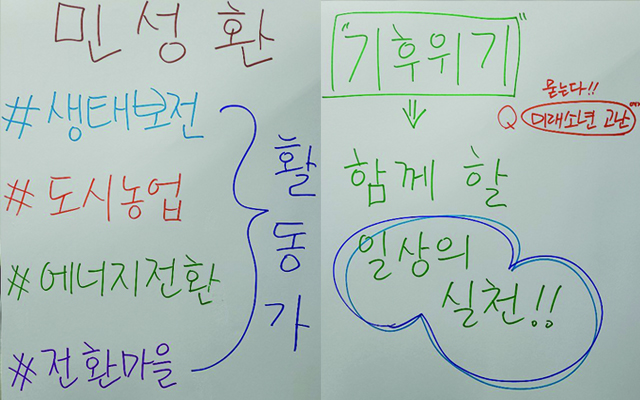 민성환
#생태보전
#도시농업
#에너지전환
#전환마을
활동가
"기후위기"
묻는다!!
Q 미래소년 코난
함께 할
일상의
실천!!